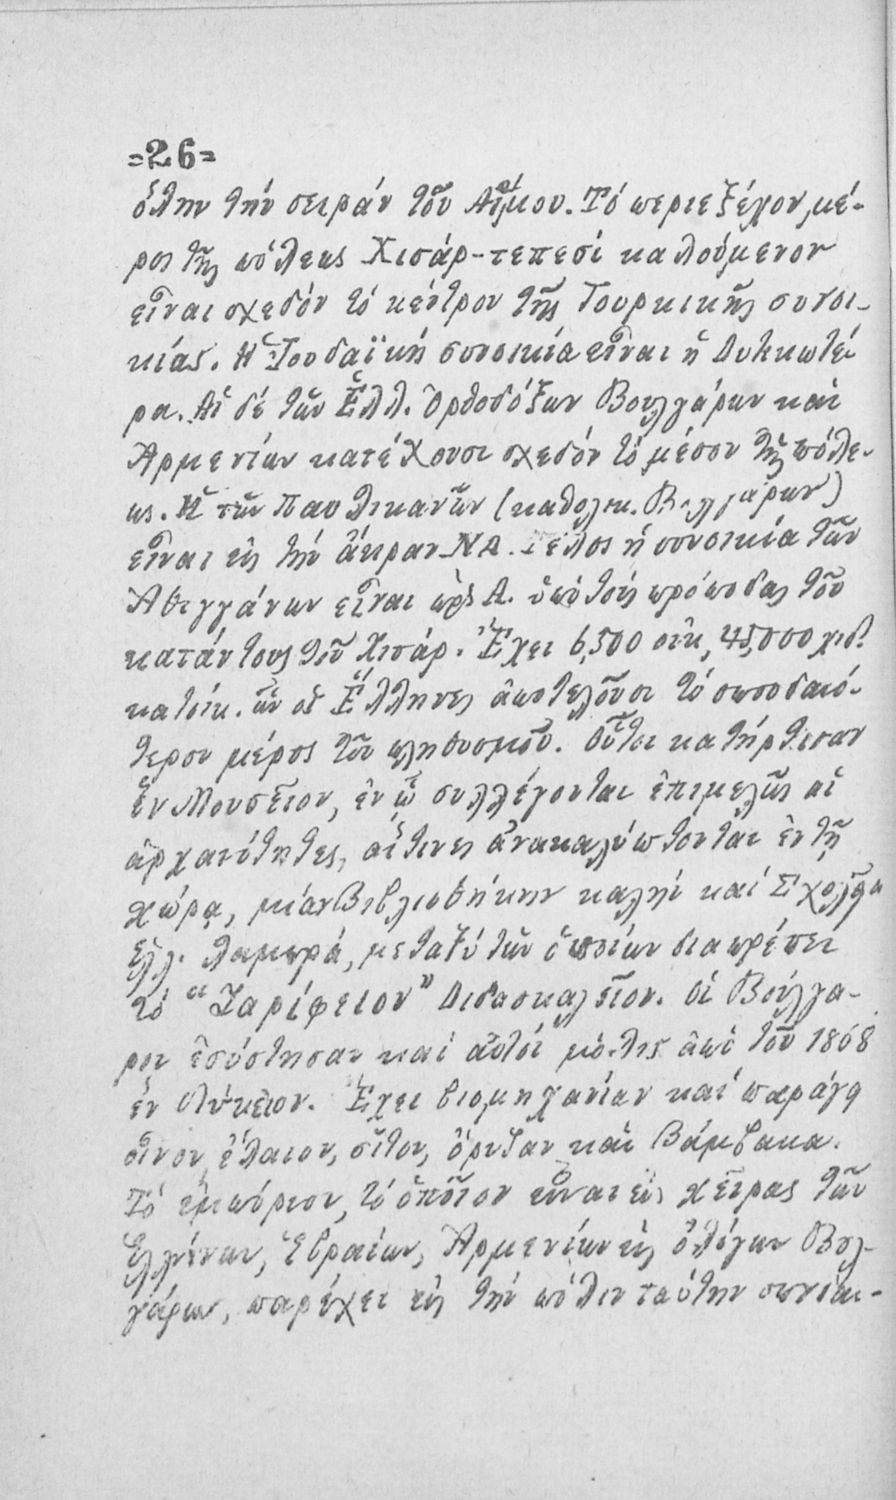 =26=
ὅλην τήν σειράν τοῦ Αἵμου. Τό περιεξέχον, μέ-
ρος τῆς πόλεως Χισάρ-τεπεσί καλούμενον
εἶναι σχεδόν τό κέντρον τῆς Τουρκικῆς συνοι-
κίας. Ἡ Ἰουδαϊκή συνοικία εἶναι ἡ Δυτικωτέ-
ρα. Αἱ δέ τῶν Ἑλλ. Ὀρθοδόξων Βουλγάρων καὶ
Ἀρμενίων κατέχουσι σχεδόν τό μέσον τῆς πόλε-
ως. Ἡ τῶν Παυλικανῶν (καθολικ. Βουλγάρων)
εἶναι εἰς τήν ἄκραν ΝΔ. Τέλος ἡ συνοικία τῶν
Ἀθιγγάνων εἶναι πρὸς Δ. ὑπό τούς πρόποδας τοῦ
κατάντους τοῦ Χισάρ. Ἔχει 6,500 οἰκ, 45,000 χιλ.
κατοίκ. ὧν οἱ Ἕλληνες ἀποτελοῦσι τό σπουδαιό-
τερον μέρος τοῦ πληθυσμοῦ. Οὗτοι κατήρτισαν
ἕν Μουσεῖον, ἐν ᾧ συλλέγονται ἐπιμελῶς αἱ
ἀρχαιότητες, αἵτινες ἀνακαλύπτονται ἐν τῇ
χώρᾳ, μίαν Βιβλιοθήκην καλήν καί Σχολεῖα
Ἑλλ. λαμπρά, μεταξύ τῶν ὁποίων διαπρέπει
τό "Ζαρίφειον" Διδασκαλεῖον. Οἱ Βούλγα-
ροι ἐσύστησαν καί αὐτοί μόλις ἀπό τοῦ 1868
ἕν Λύκειον. Ἔχει βιομηχανίαν καί παράγει
οἶνον, ἔλαιον, σῖτον, ὄρυζαν καὶ Βάμβακα.
Τό ἐμπόριον, τό ὁποῖον εἶναι εἰς χεῖρας τῶν
Ἑλλήνων, Ἑβραίων, Ἀρμενίων εἰς ὀλίγων Βουλ-
γάρων, παρέχει εἰς τήν πόλιν ταύτην σπουδαι-